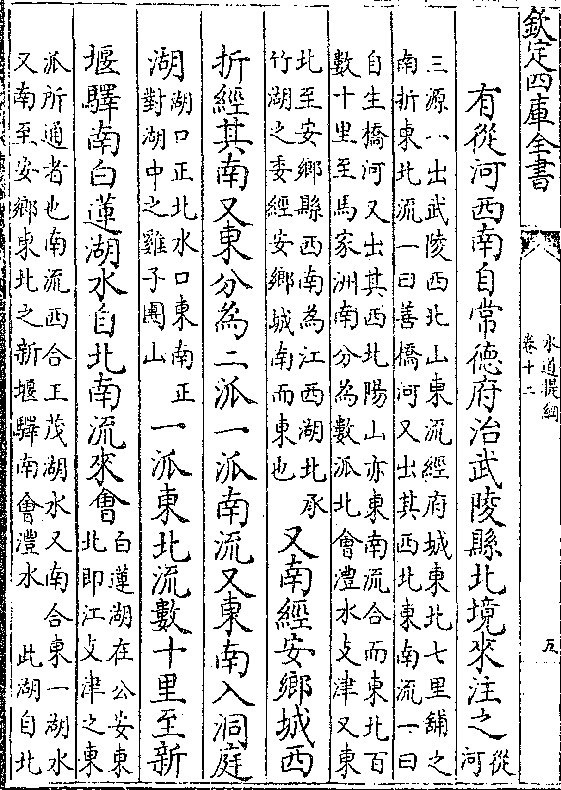 欽定四庫全書
水道提綱
卷十二
五
有從河西南自常德府治武陵縣北境來注之
從
河
三源一出武陵西北山東流經府城東北七里舖之
南折東北流一曰善僑河又出其西北東南流一曰
自生橋河又出其西北陽山亦東南流合而東北百
數十里至馬家洲南分為數派北會澧水攴津又東
北至安鄉縣西南為江西湖北承
竹湖之委經安鄉城南而東也
又南經安鄉城西
折經其南又東分為二派一派南流又東南入洞庭
湖
湖口正北水口東南正
對湖中之雞子團山
一派東北流數十里至新
堰驛南白蓮湖水自北南流來會
白蓮湖在公安東
北即江攴津之東
派所通者也南流西合王茂湖水又南合東一湖水
又南至安鄉東北之新堰驛南會澧水 此湖自北